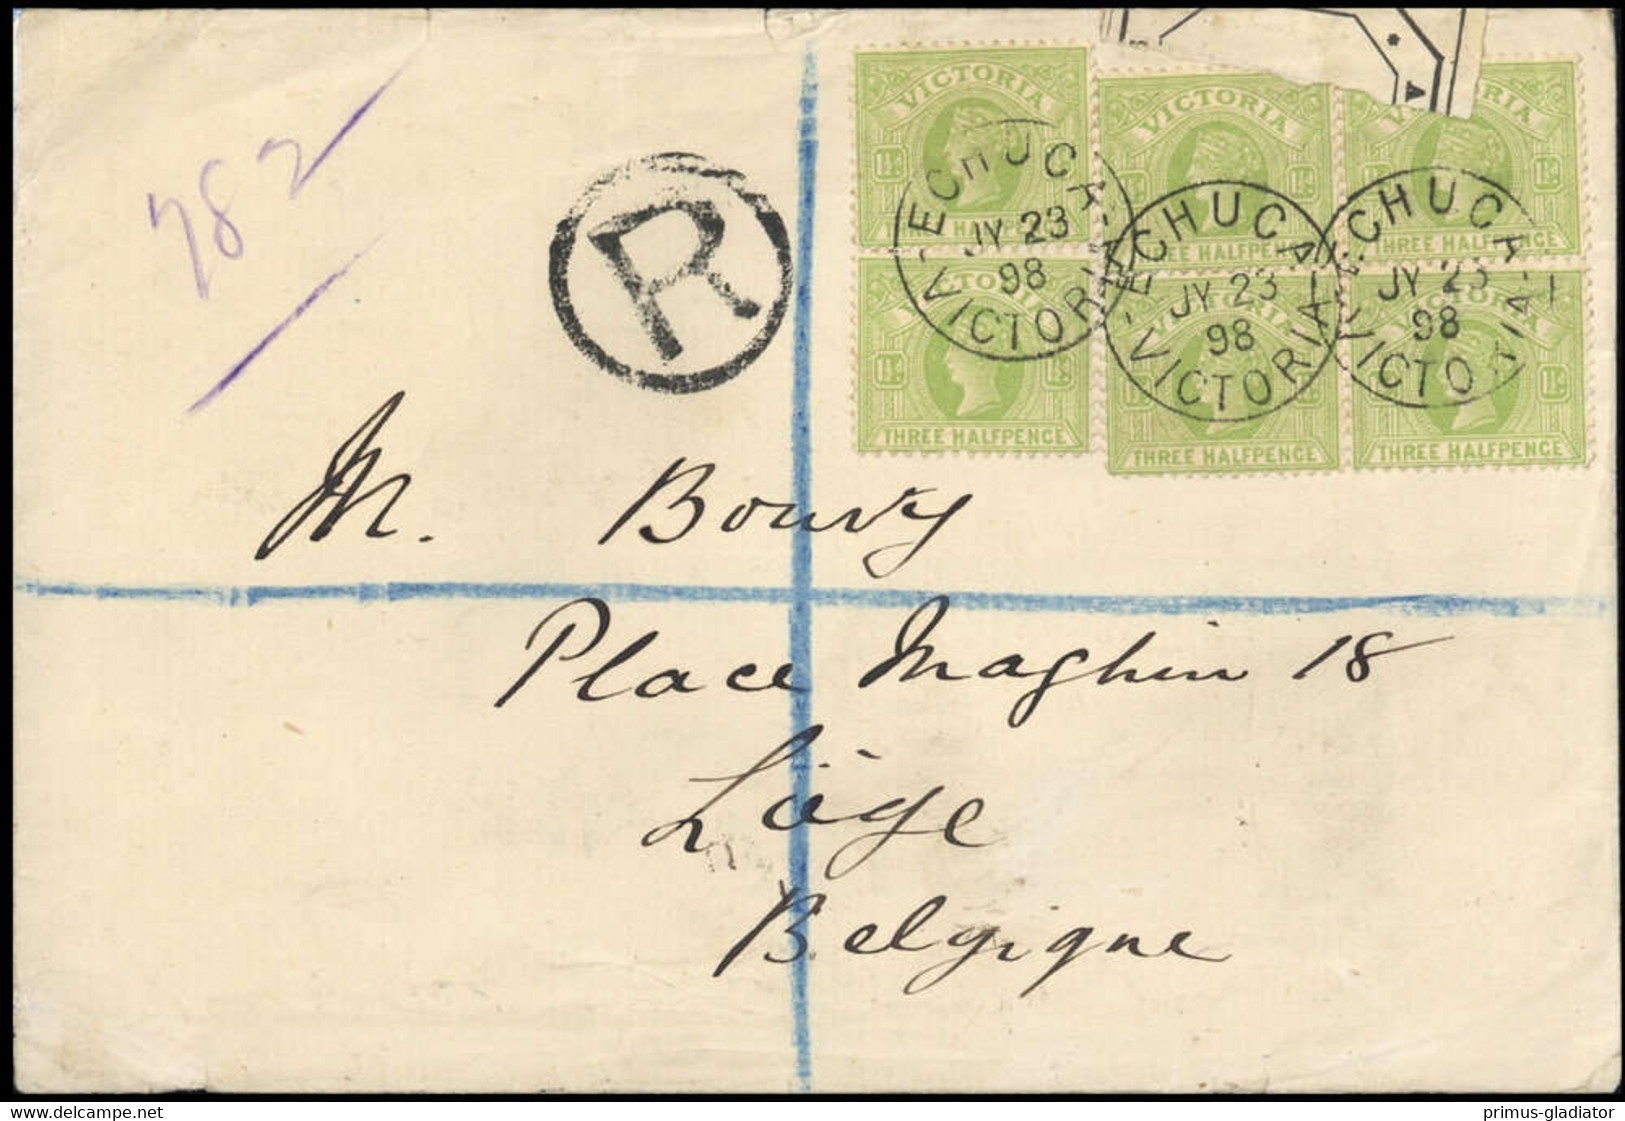 782
R
VICTORIA
VICTORIA
VICTORIA
1½D
THREE HALFPENCE
THREE HALFPENCE
THREE HALFPENCE
THREE HALFPENCE
THREE HALFPENCE
ECHUCA
JY 23
98
VICTORIA
ECHUCA
JY 23
98
VICTORIA
ECHUCA
JY 23
98
VICTORIA
A
M. Bouvy
Place Maghin 18
Liège
Belgique
delcampe.net
primus-gladiator